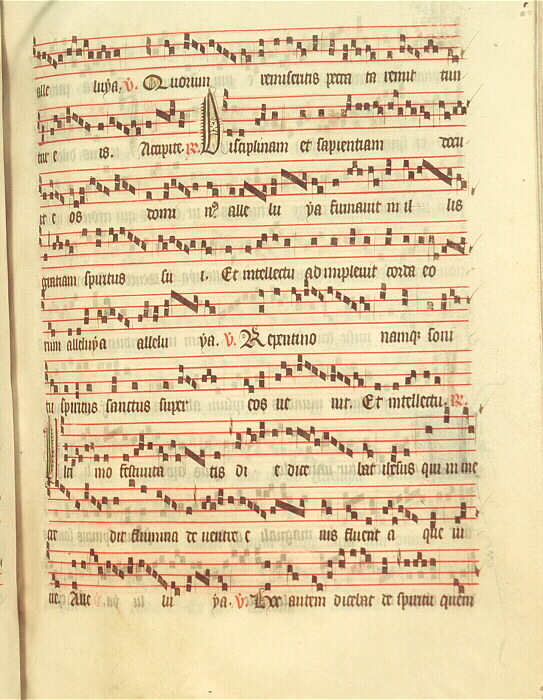 alle luya. V. Quorum remiseritis pccta ta remit tun
tur e is. Accipite. R. Disciplinam et sapientiam docu
it e os domi nus alle lu ya firmavit in il lis
gratiam spiritus su i. Et intellectu ad implevit corda eo
rum alleluya allelu ya. V. Repentino namque soni
tu spiritus sanctus super eos ve nit. Et intellectu. R.
Ulti mo festivita tis di e dice bat ihesus qui in me
cre dit flumina de ventre e ius fluent a que vi
ve. Alle lu ya. V. Hoc autem dicebat de spiritu quem